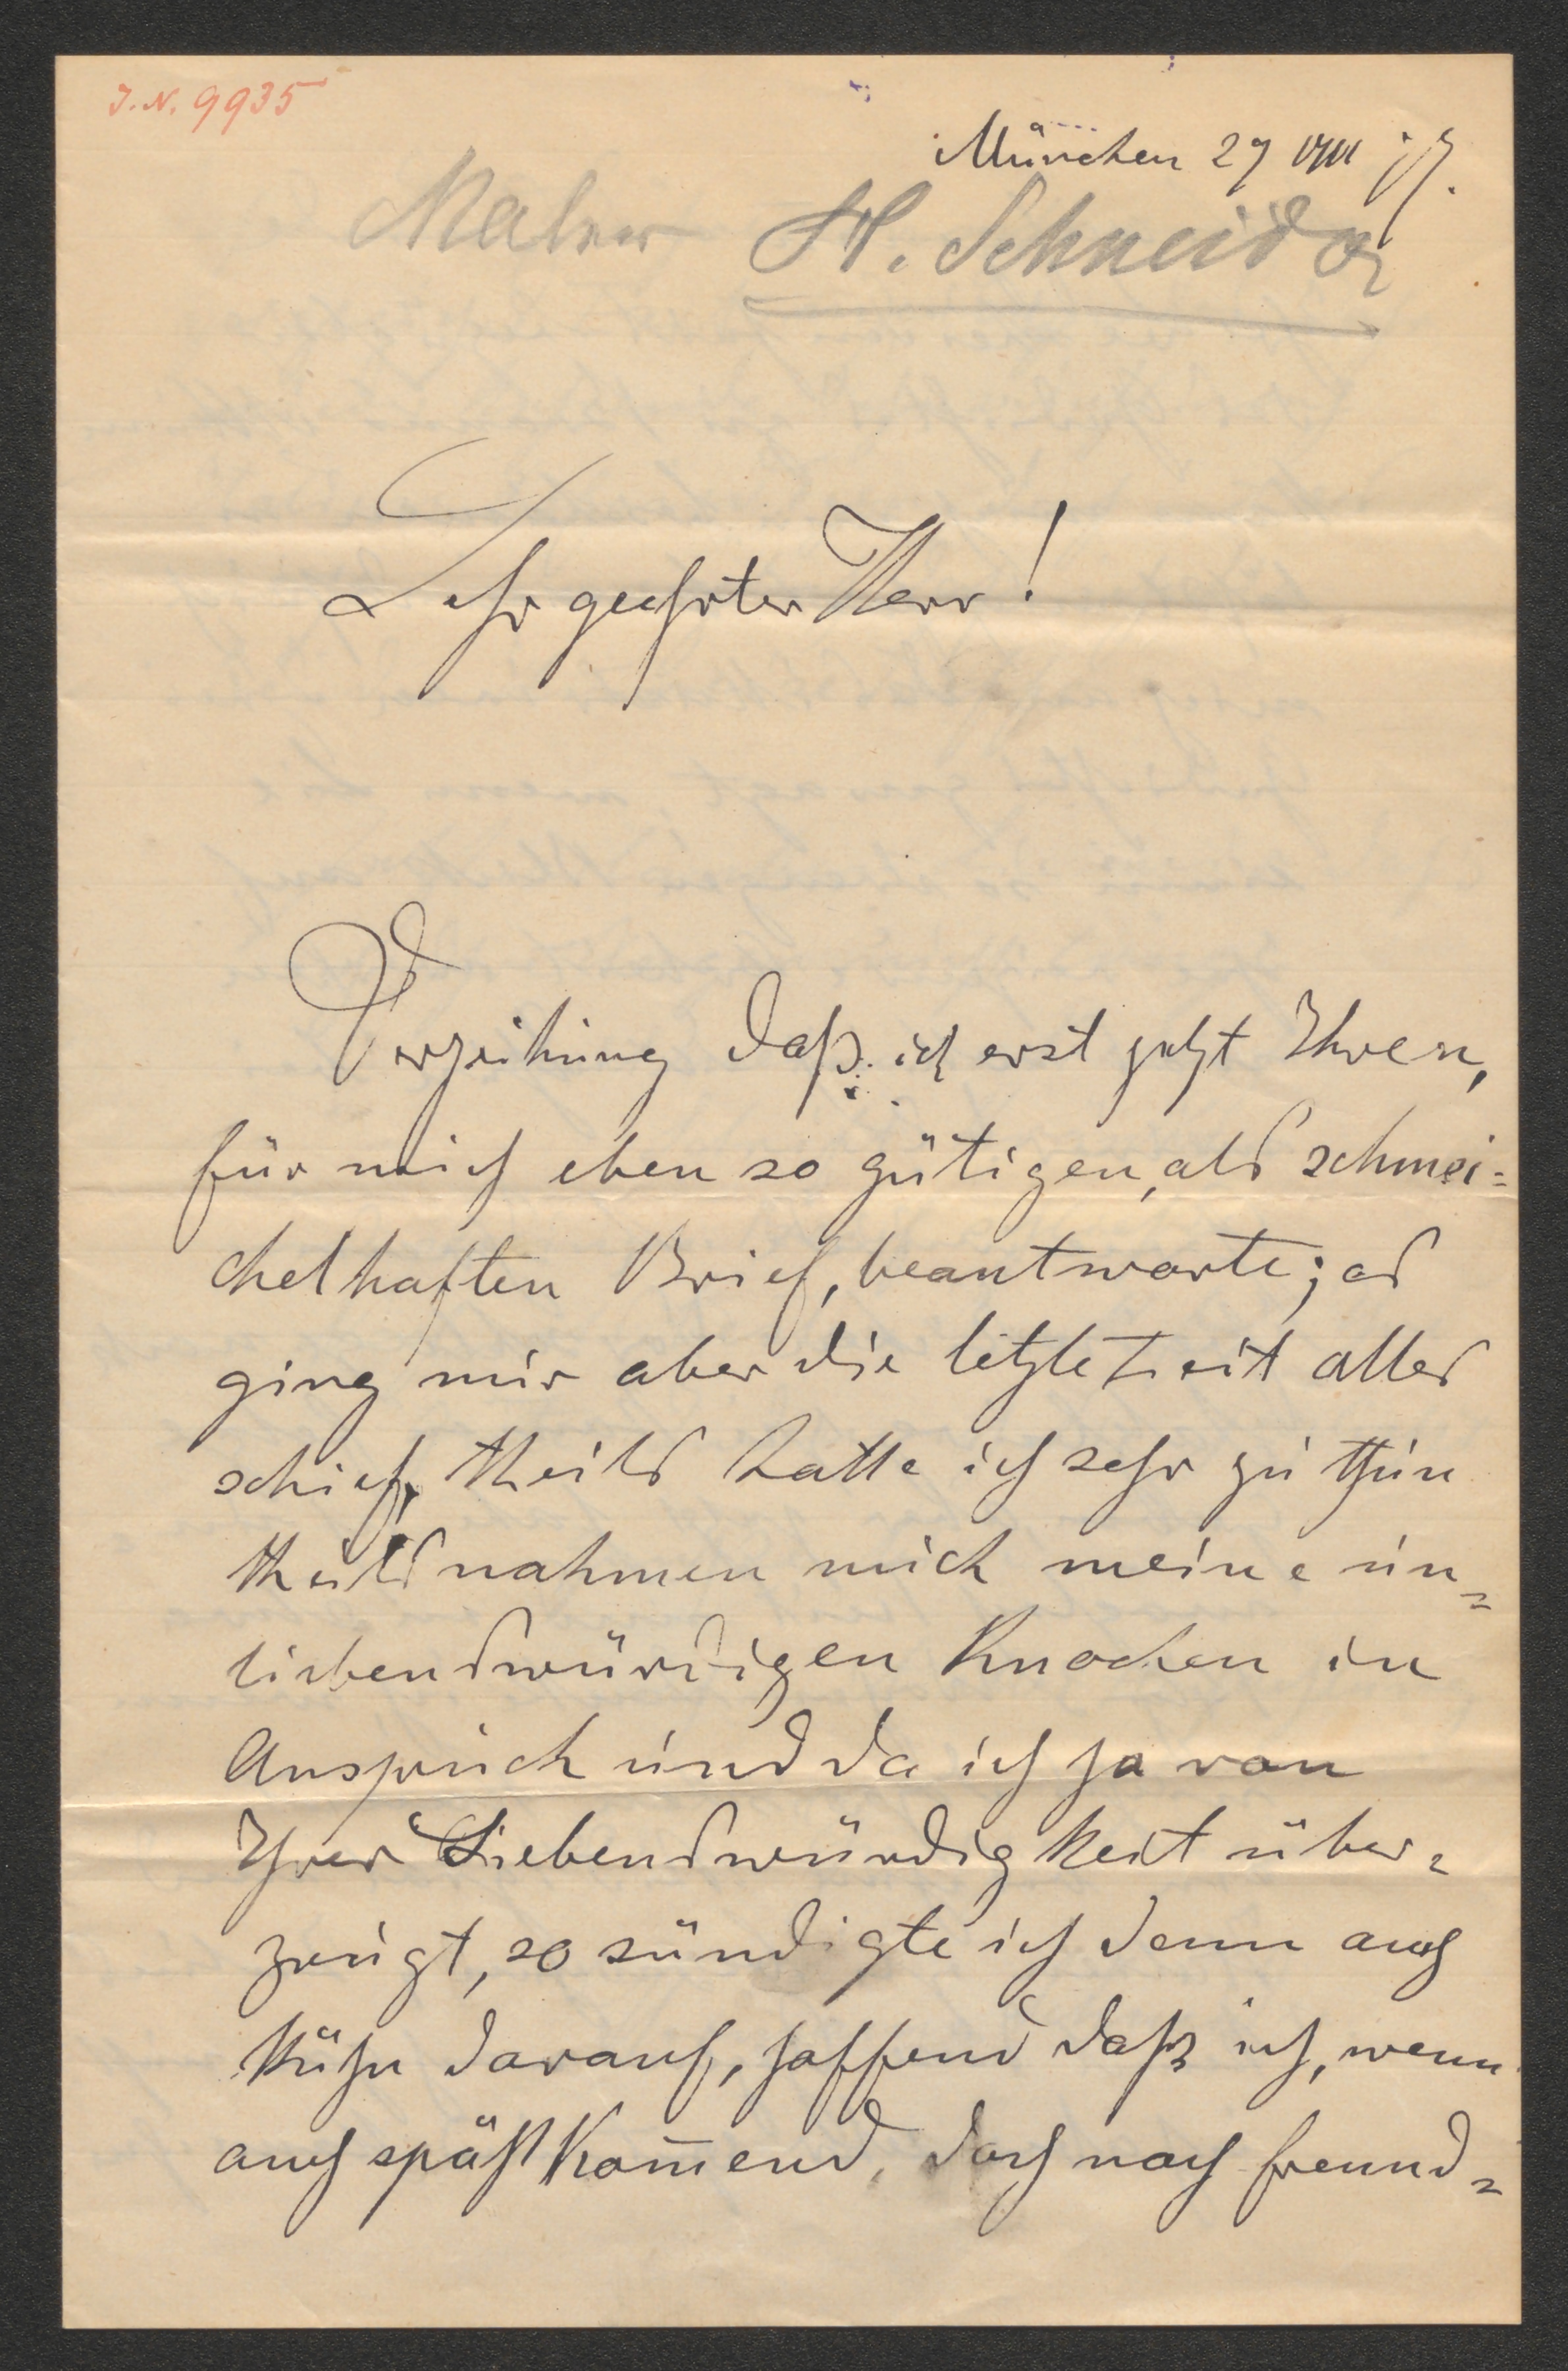 J. N. 9935
München 27 VIII
Maler H. Schneider
Sehr geehrter Herr!
Verzeihung daß ich erst jetzt Ihren,
für mich eben so gütigen, als schmei=
chelhaften Brief, beantworte; es
ging mir aber die letzte Zeit alles
schief, theils hatte ich sehr zu thun
theils nahmen mich meine un=
liebenswürdigen Knochen in
Anspruch und da ich ja von
Ihrer Liebenswürdigkeit über=
zeugt, so sündigte ich denn auch
kühn darauf, hoffend daß ich, wenn
auch spät kom̅end, doch noch freund=